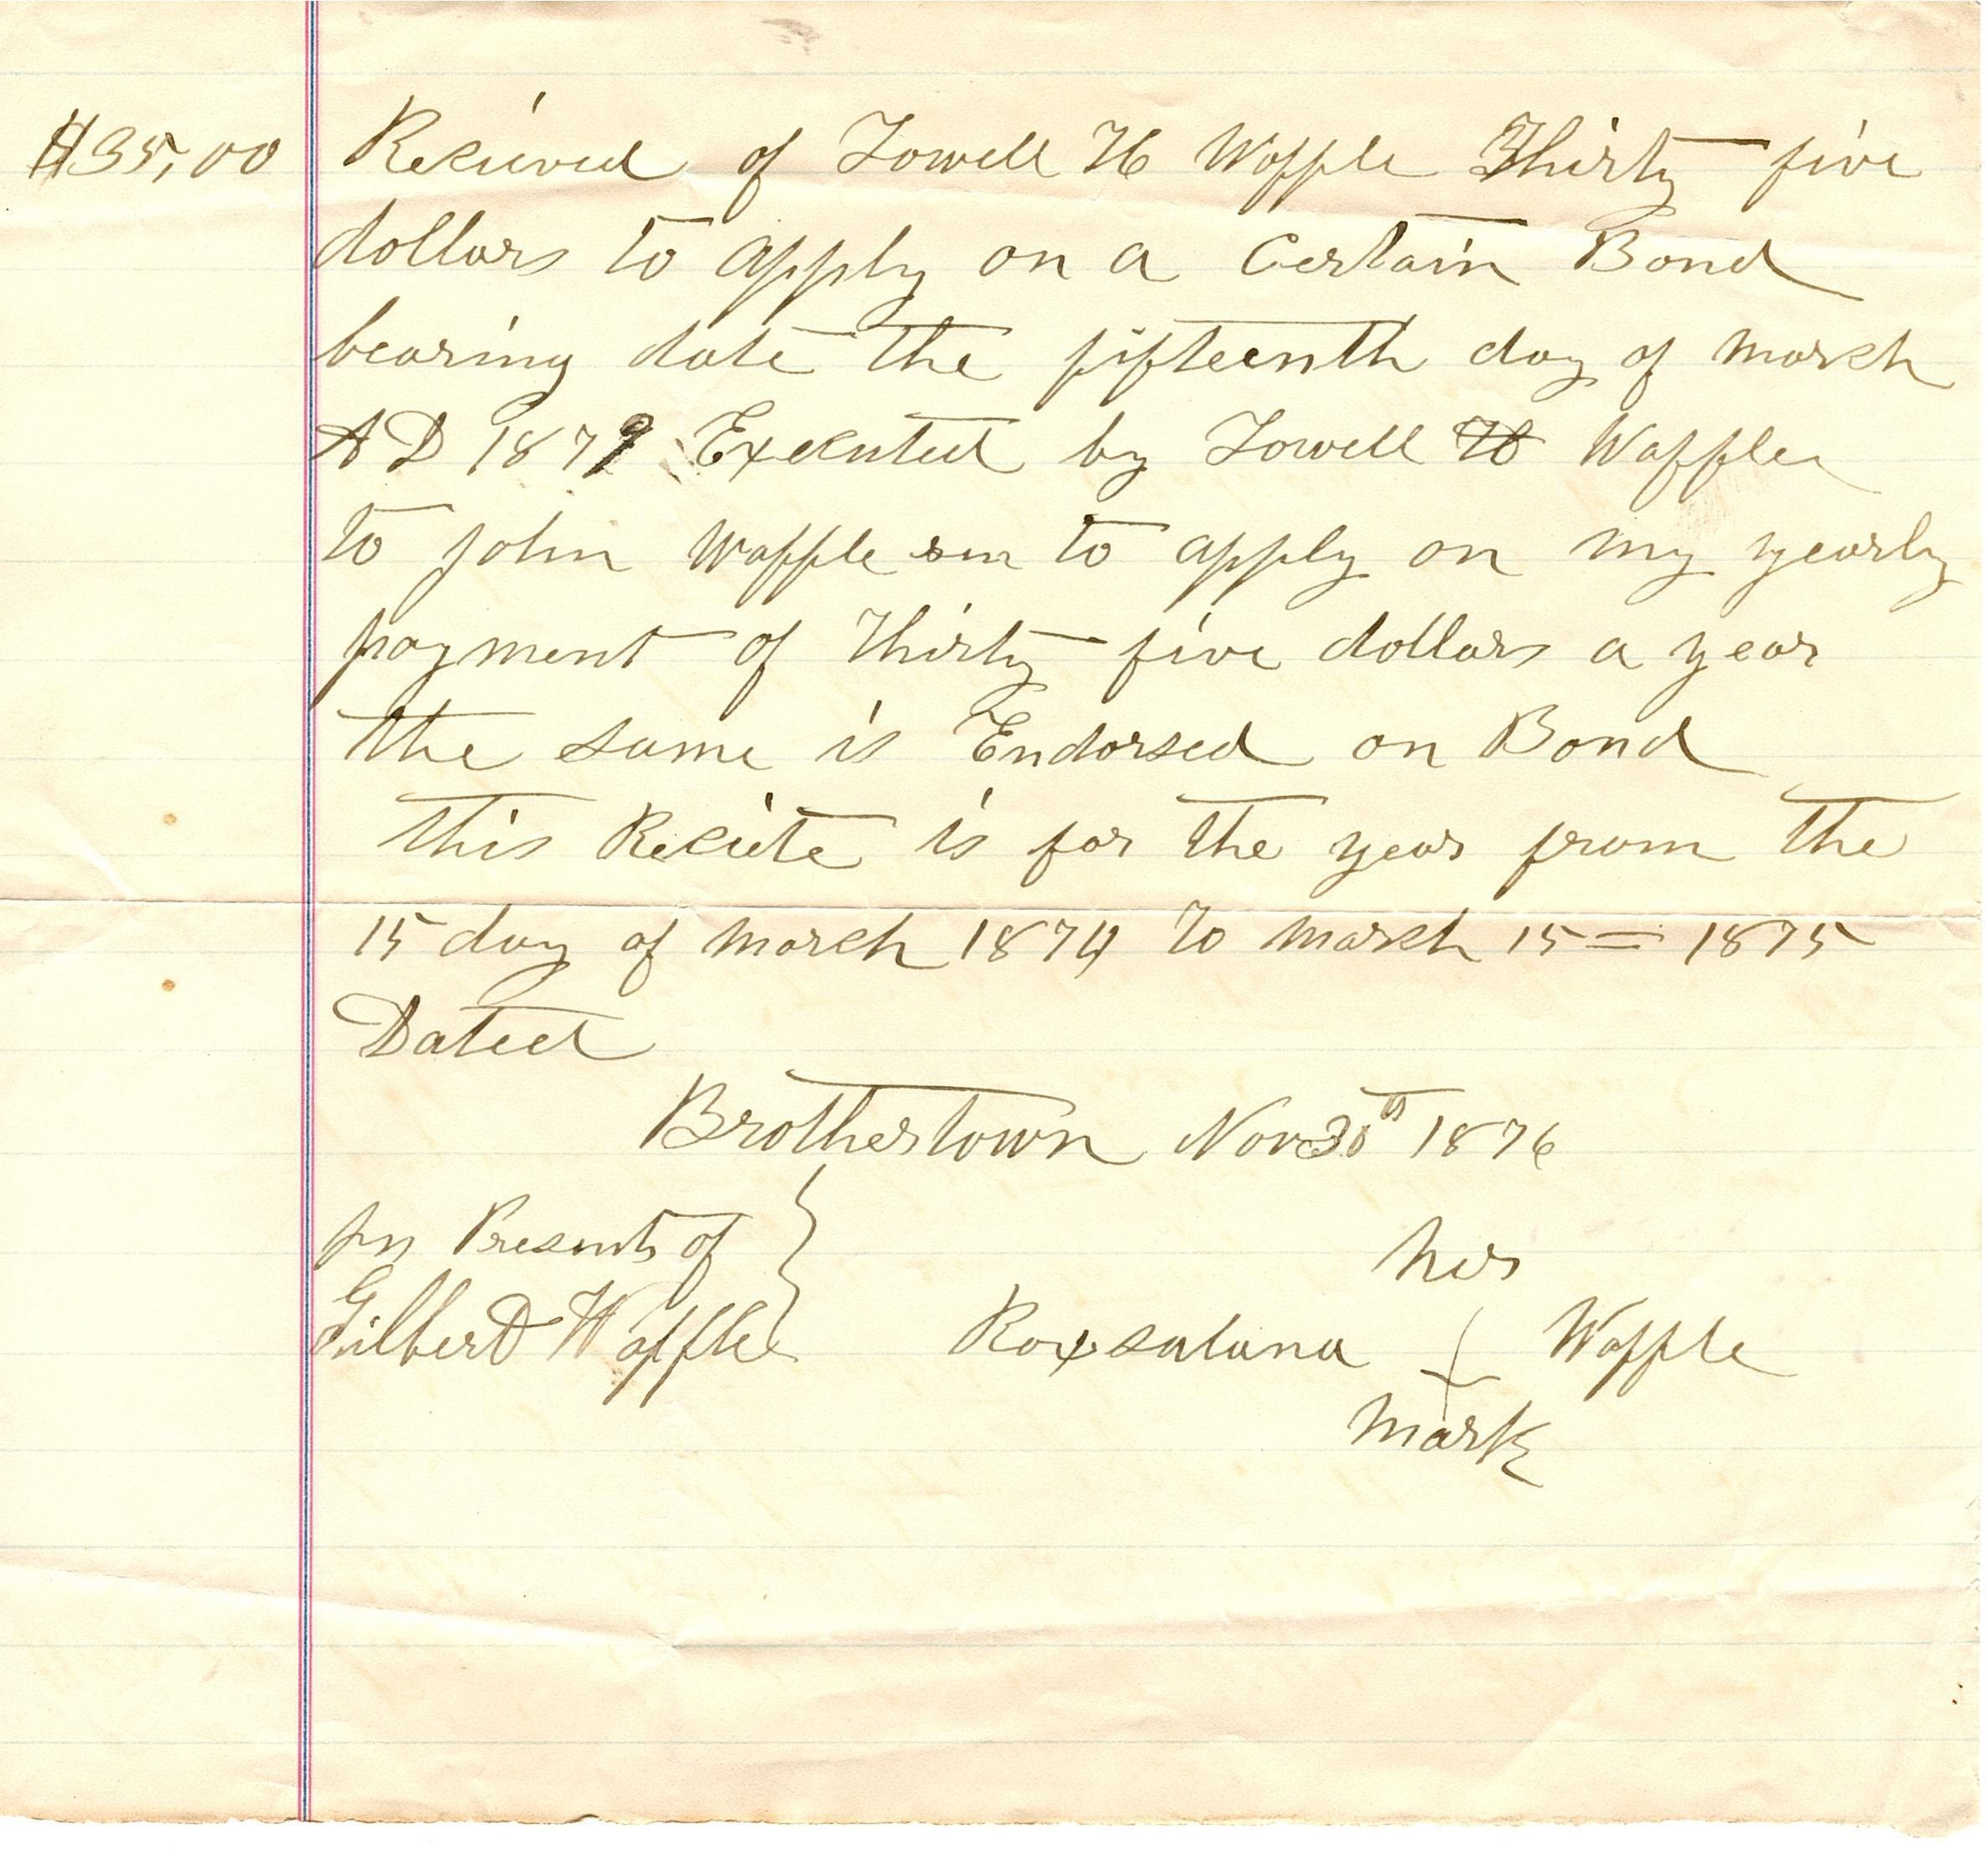 $35,00 Recieved of Lowell H Waffle Thirty five
dollars to apply on a Certain Bond
bearing date the fifteenth day of march
A D 1879 Executed by Lowell H Waffle
to John Waffle sen to apply on my yearly
payment of Thirty five dollars a year
the same is Endorsed on Bond
this Reciete is for the year from the
15 day of march 1874 to march 15 = 1875
Dated
Brothertown Nov 30th 1876
In Presents of
Gilbert Waffle
her
Roxsalana Waffle
mark